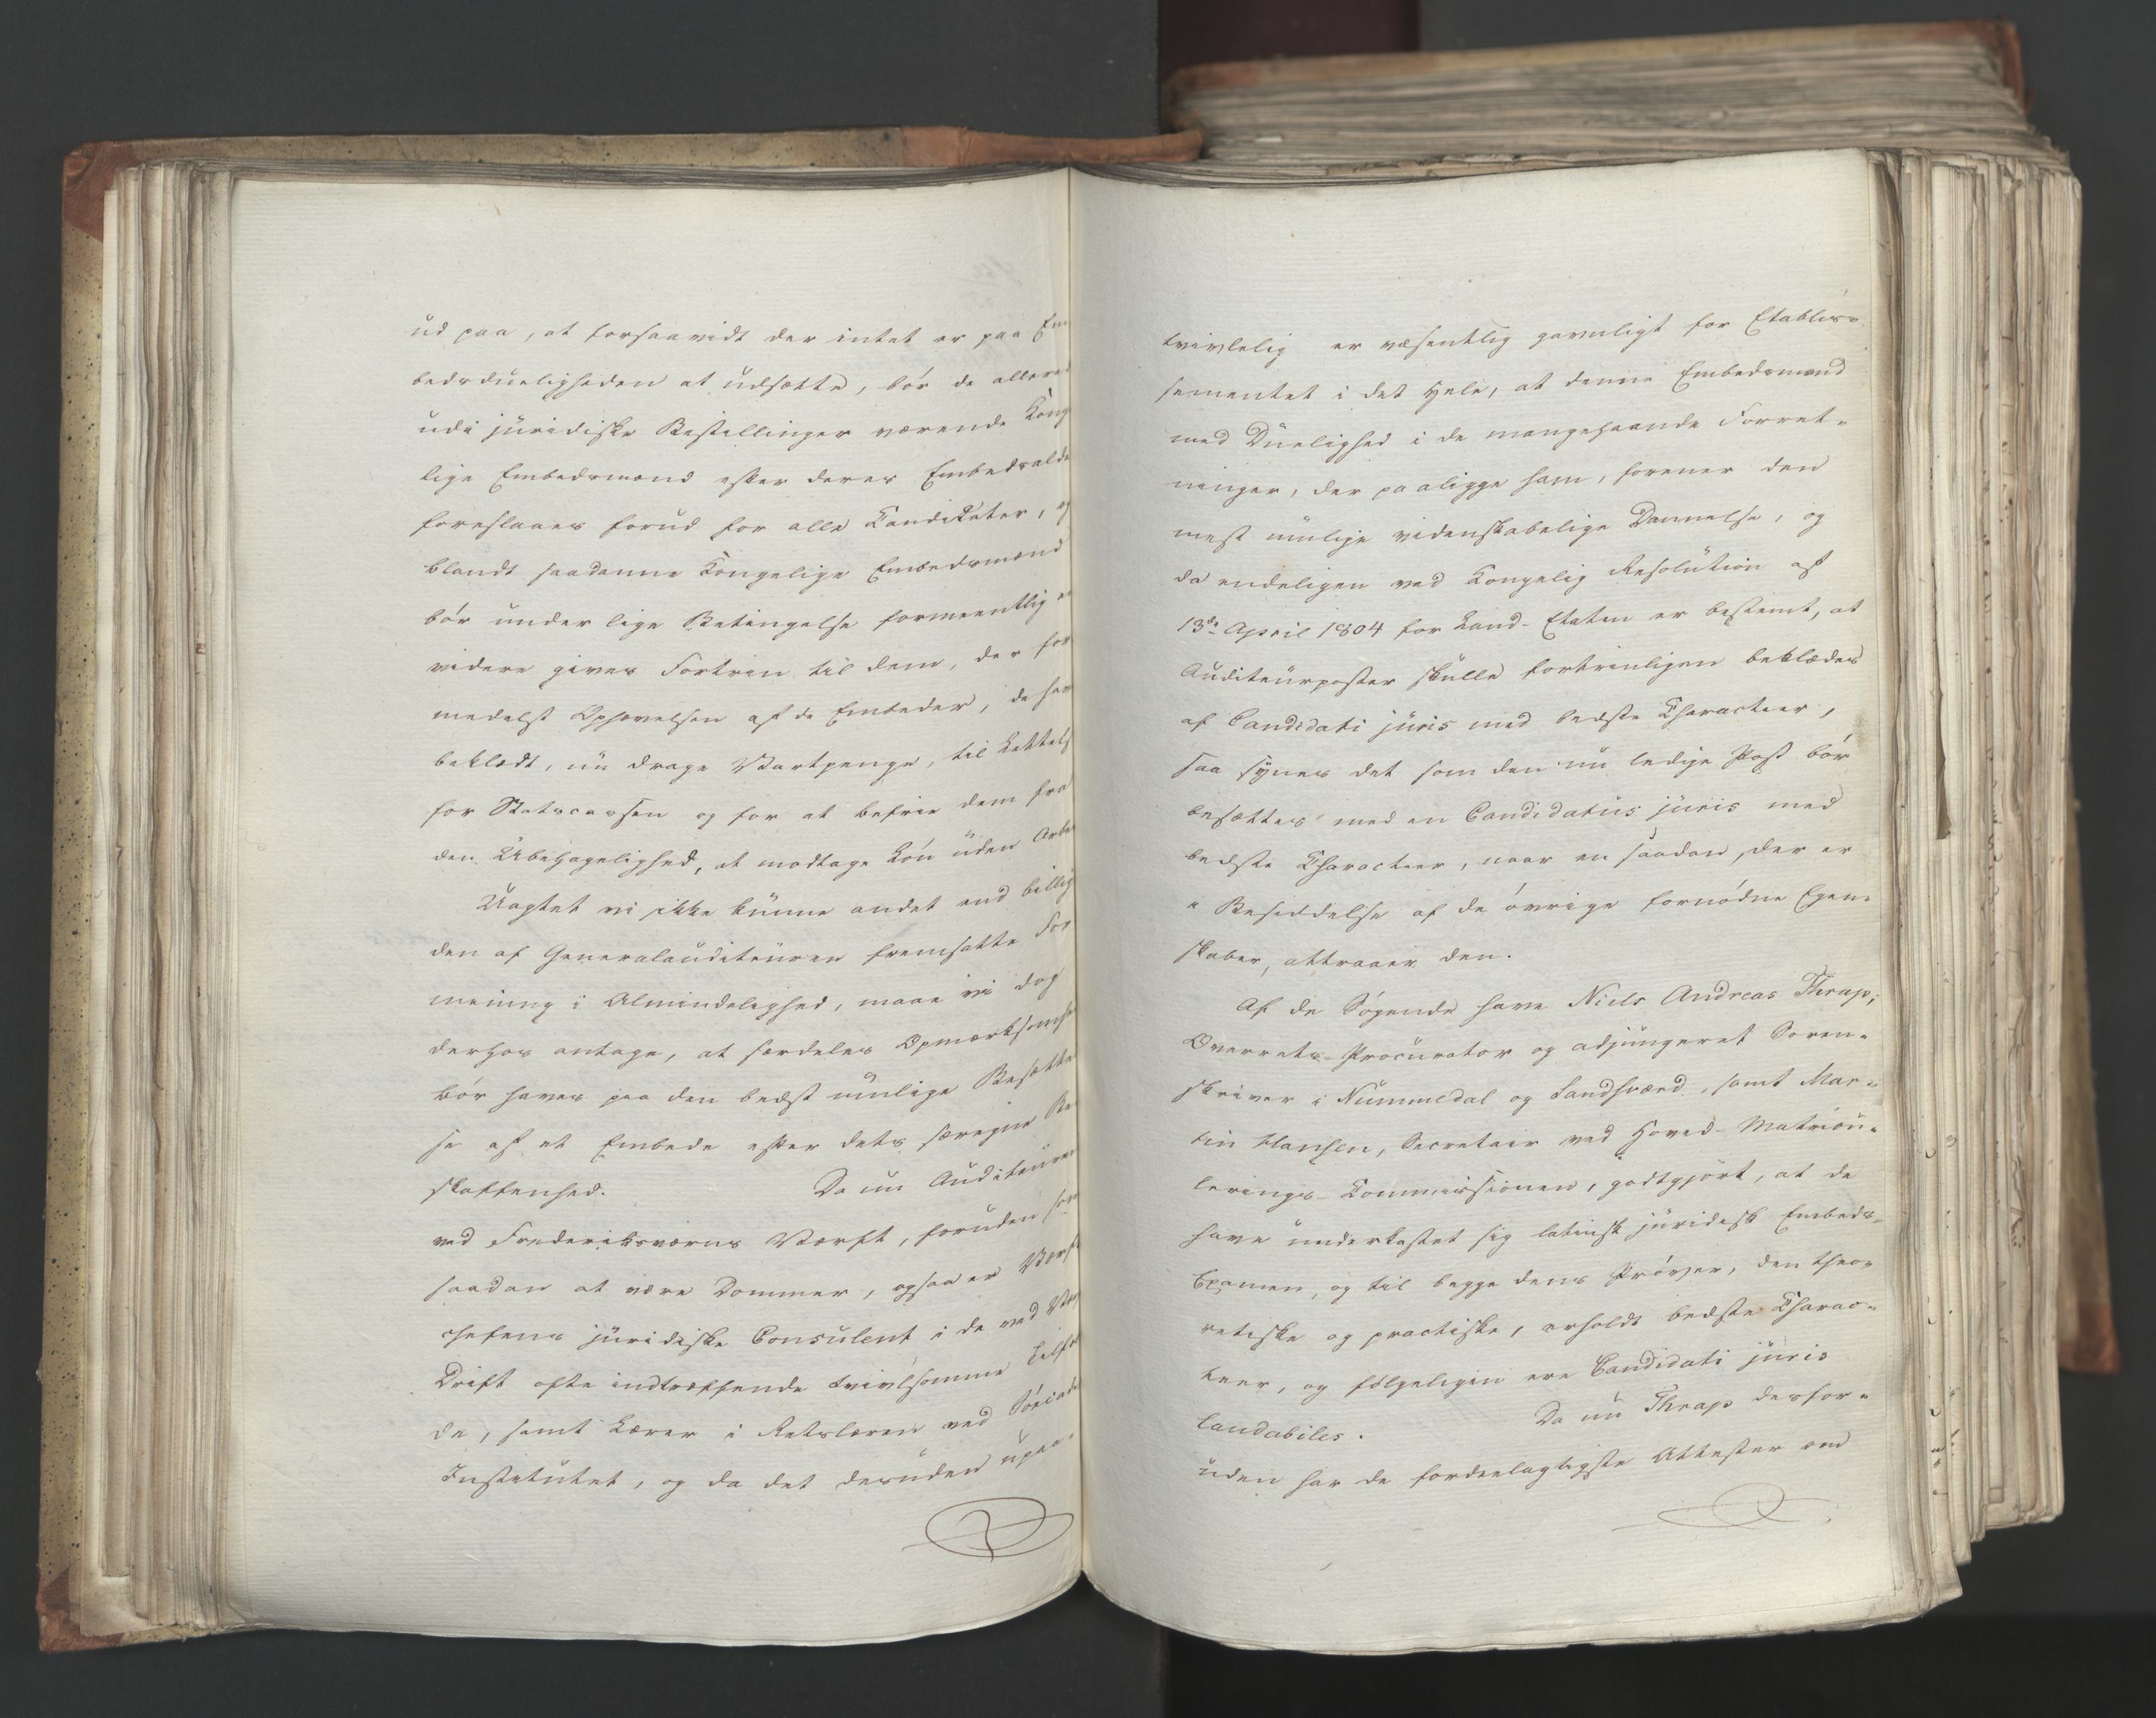 ud paa, at forsaavidt der intet er paa Em
bedsdueligheden at udsætte, bør de allere
udi juridiske Bestillinger værende Kong
lige Embedsmænd efter deres Embedsalde
foreslaaes forud for alle Candidater, og
blandt saadanne Kongelige Embedsmænd
bør under lige Betingelse formeentlig
videre gives Fortrin til dem, der for
medelst Ophævelsen af de Embeder, de har
beklædt, nu drage Vartpenge, til Lettels
for Statscassen og for at befrie dem fra
den Ubehagelighed, at modtage Løn uden Arbe
Uagtet vi ikke kunne andet end billig
den af Generalauditeuren fremsatte For
mening i Almindelighed, maae vi dog
derhos antage, at særdeles Opmærksomhe
bør haves paa den bedst mulige Besætte
se af et Embede efter dets særegne Be
skaffenhed. Da nu Auditeuren
ved Frederiksværns Værft, foruden som
saadan at være Dommer, ogsaa er Værft
chefens juridiske Consulent i de ved Vær
Drift ofte indtræffende tvivlsomme Tilfæl
de, samt Lærer i Retslæren ved Søecadet
Institutet, og da det desuden upaa-
tvivlelig er væsentlig gavnligt for Etablis-
sementet i det Hele, at denne Embedsmand
med Duelighed i de mangehaande Forret-
ninger, der paaligge ham, forener den
mest mulige videnskabelige Dannelse, og
da endeligen ved Kongelig Resolution af
13de April 1804 for Land-Etaten er bestemt, at
Auditeurposter skulle fortrinligen beklædes
af Candidati juris med bedste Characteer,
saa synes det som den nu ledige Post bør
besættes med en Candidatus juris med
bedste Characteer, naar en saadan, der er
i Besiddelse af de øvrige fornødne Egen-
skaber, attraaer den.
Af de Søgende have Niels Andreas Thrap,
Overrets-Procurator og adjungeret Soren-
skriver i Nummedal og Sandsværd, samt Mar-
tin Hansen, Secretair ved Hoved-Matricu-
lerings-Commissionen, godtgjort, at de
have underkastet sig latinsk juridisk Embeds-
Examen, og til begge dens Prøver, den theo-
retiske og practiske, erholdt bedste Charac-
teer, og følgeligen ere Candidati juris
laudabiles. Da nu Thrap desfor-
uden har de fordeelagtigste Attester om